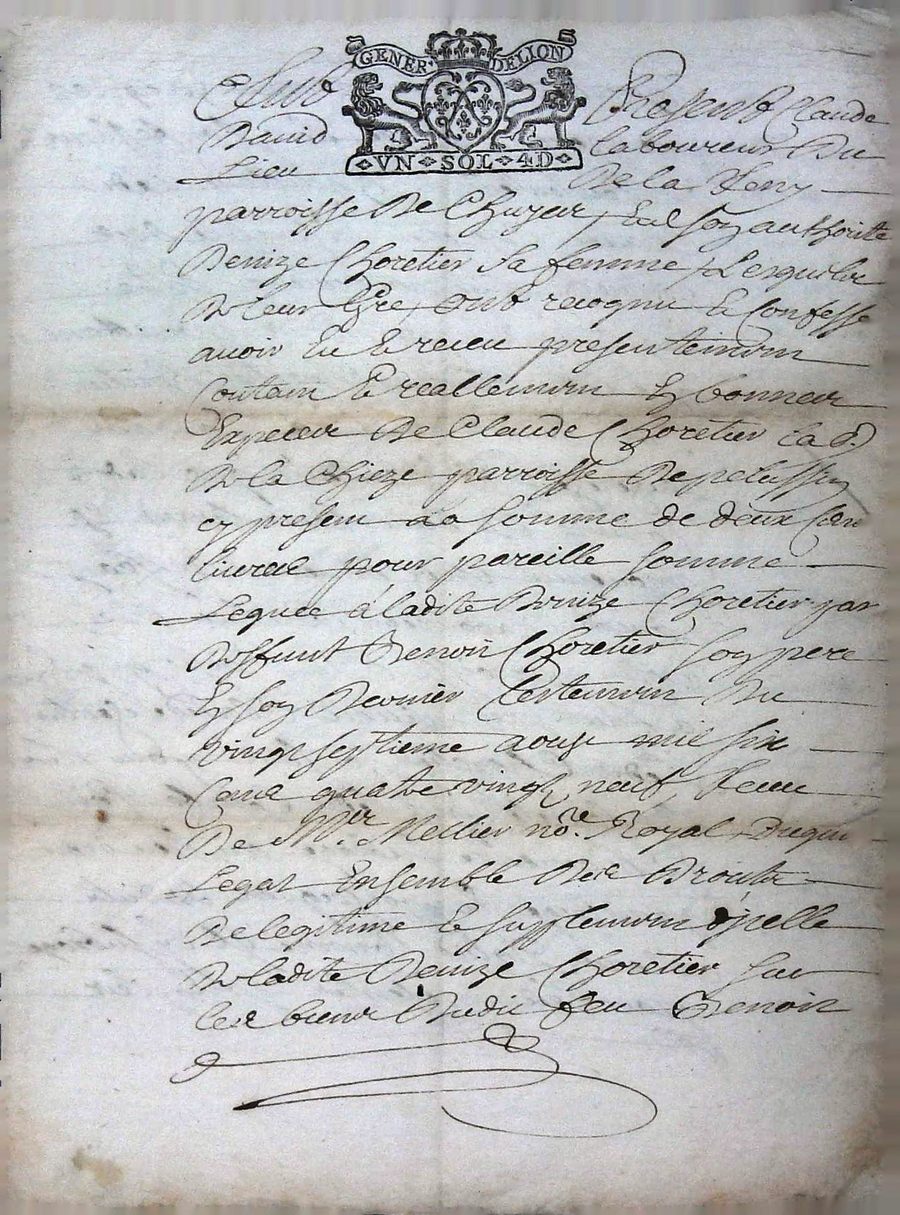 GENER. DE LION
VN SOL 4D
Present Claude
David laboureur Du
Lieu De la
parroisse De Chuyer, Et de soy authorite
Denize Choretier Sa femme, Lesquelz
De leur Gre, Ont recognu Et Confesse
avoir Eu Et receu presentement
Contant Et reallement En bonnes
Especes De Claude Choretier Lad.
De la Chieze parroisse De pelussin
cy present la somme de deux Cens
livres pour pareille somme
Leguee a ladite Denize Choretier par
Deffunt Benoit Choretier Son pere
En son Dernier Testement Du
vingt septieme aoust mil six
Cens quatre vingt neuf Receu
De Mtr. Mellier nore. Royal
Legat Ensemble Des Droits
De legitime Et supplement
De ladite Denize Choretier sur
les biens Dudit feu Benoit